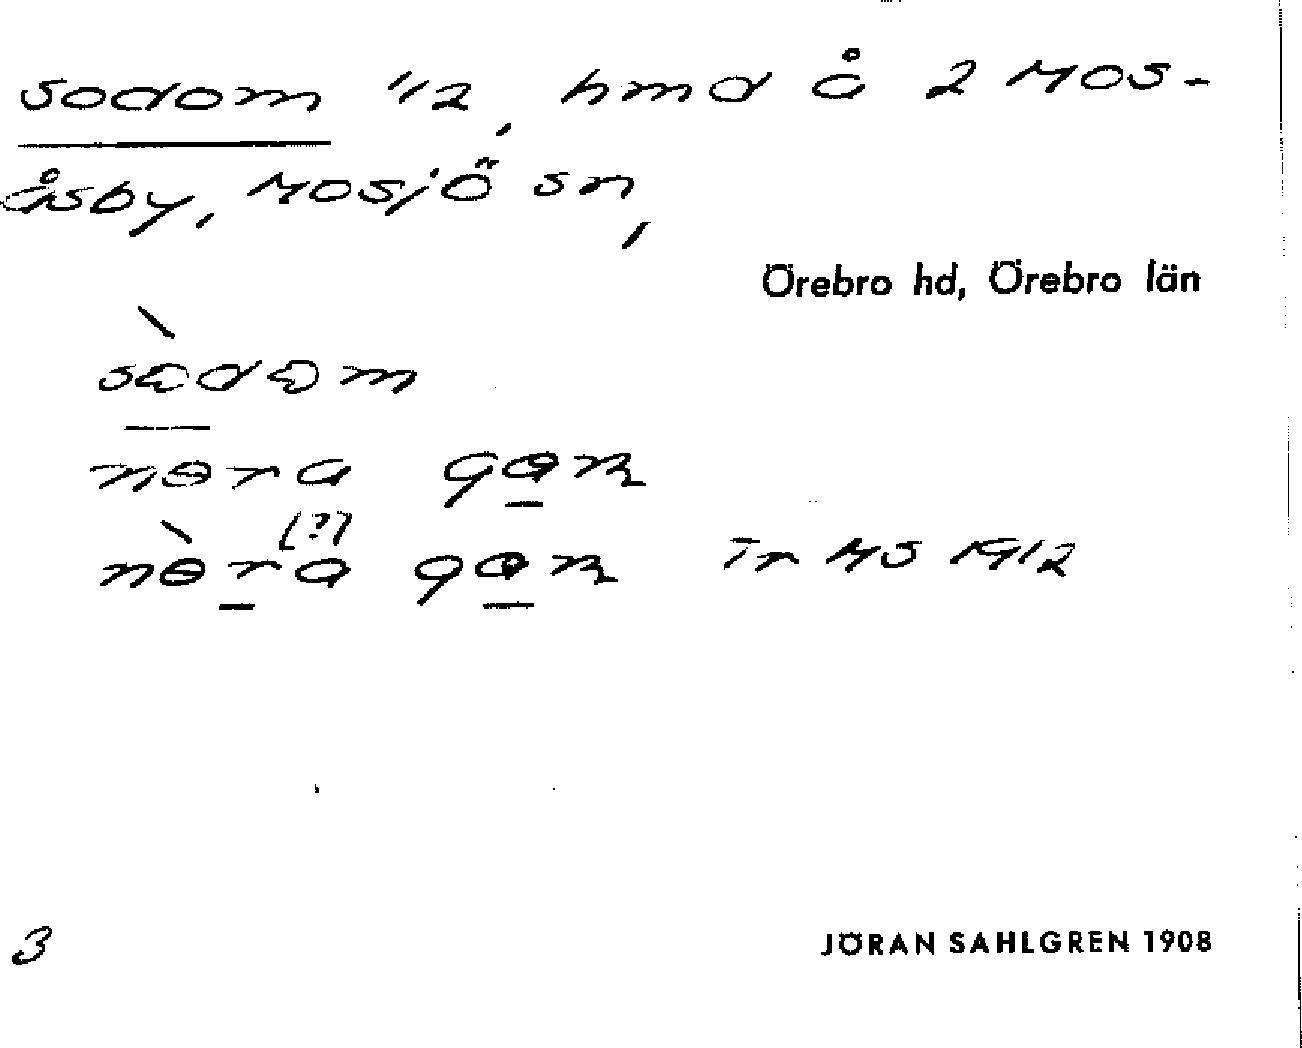 Sodom 1/2, hmd å 2 Mos-
åsby, Mosjö sn,
Örebro hd, Örebro län
sòdom
nɵra gan
(?)
nɵ̀ra gan Tr MS 1912
3
JÖRAN SAHLGREN 1908